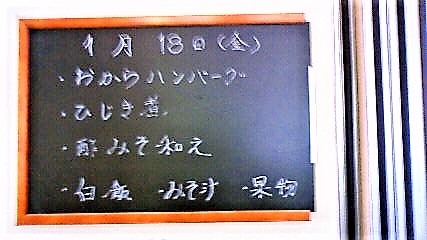 1月18日(金)
・おからハンバーグ
・ひじき煮
・酢みそ和え
・白飯 ・みそ汁 ・果物